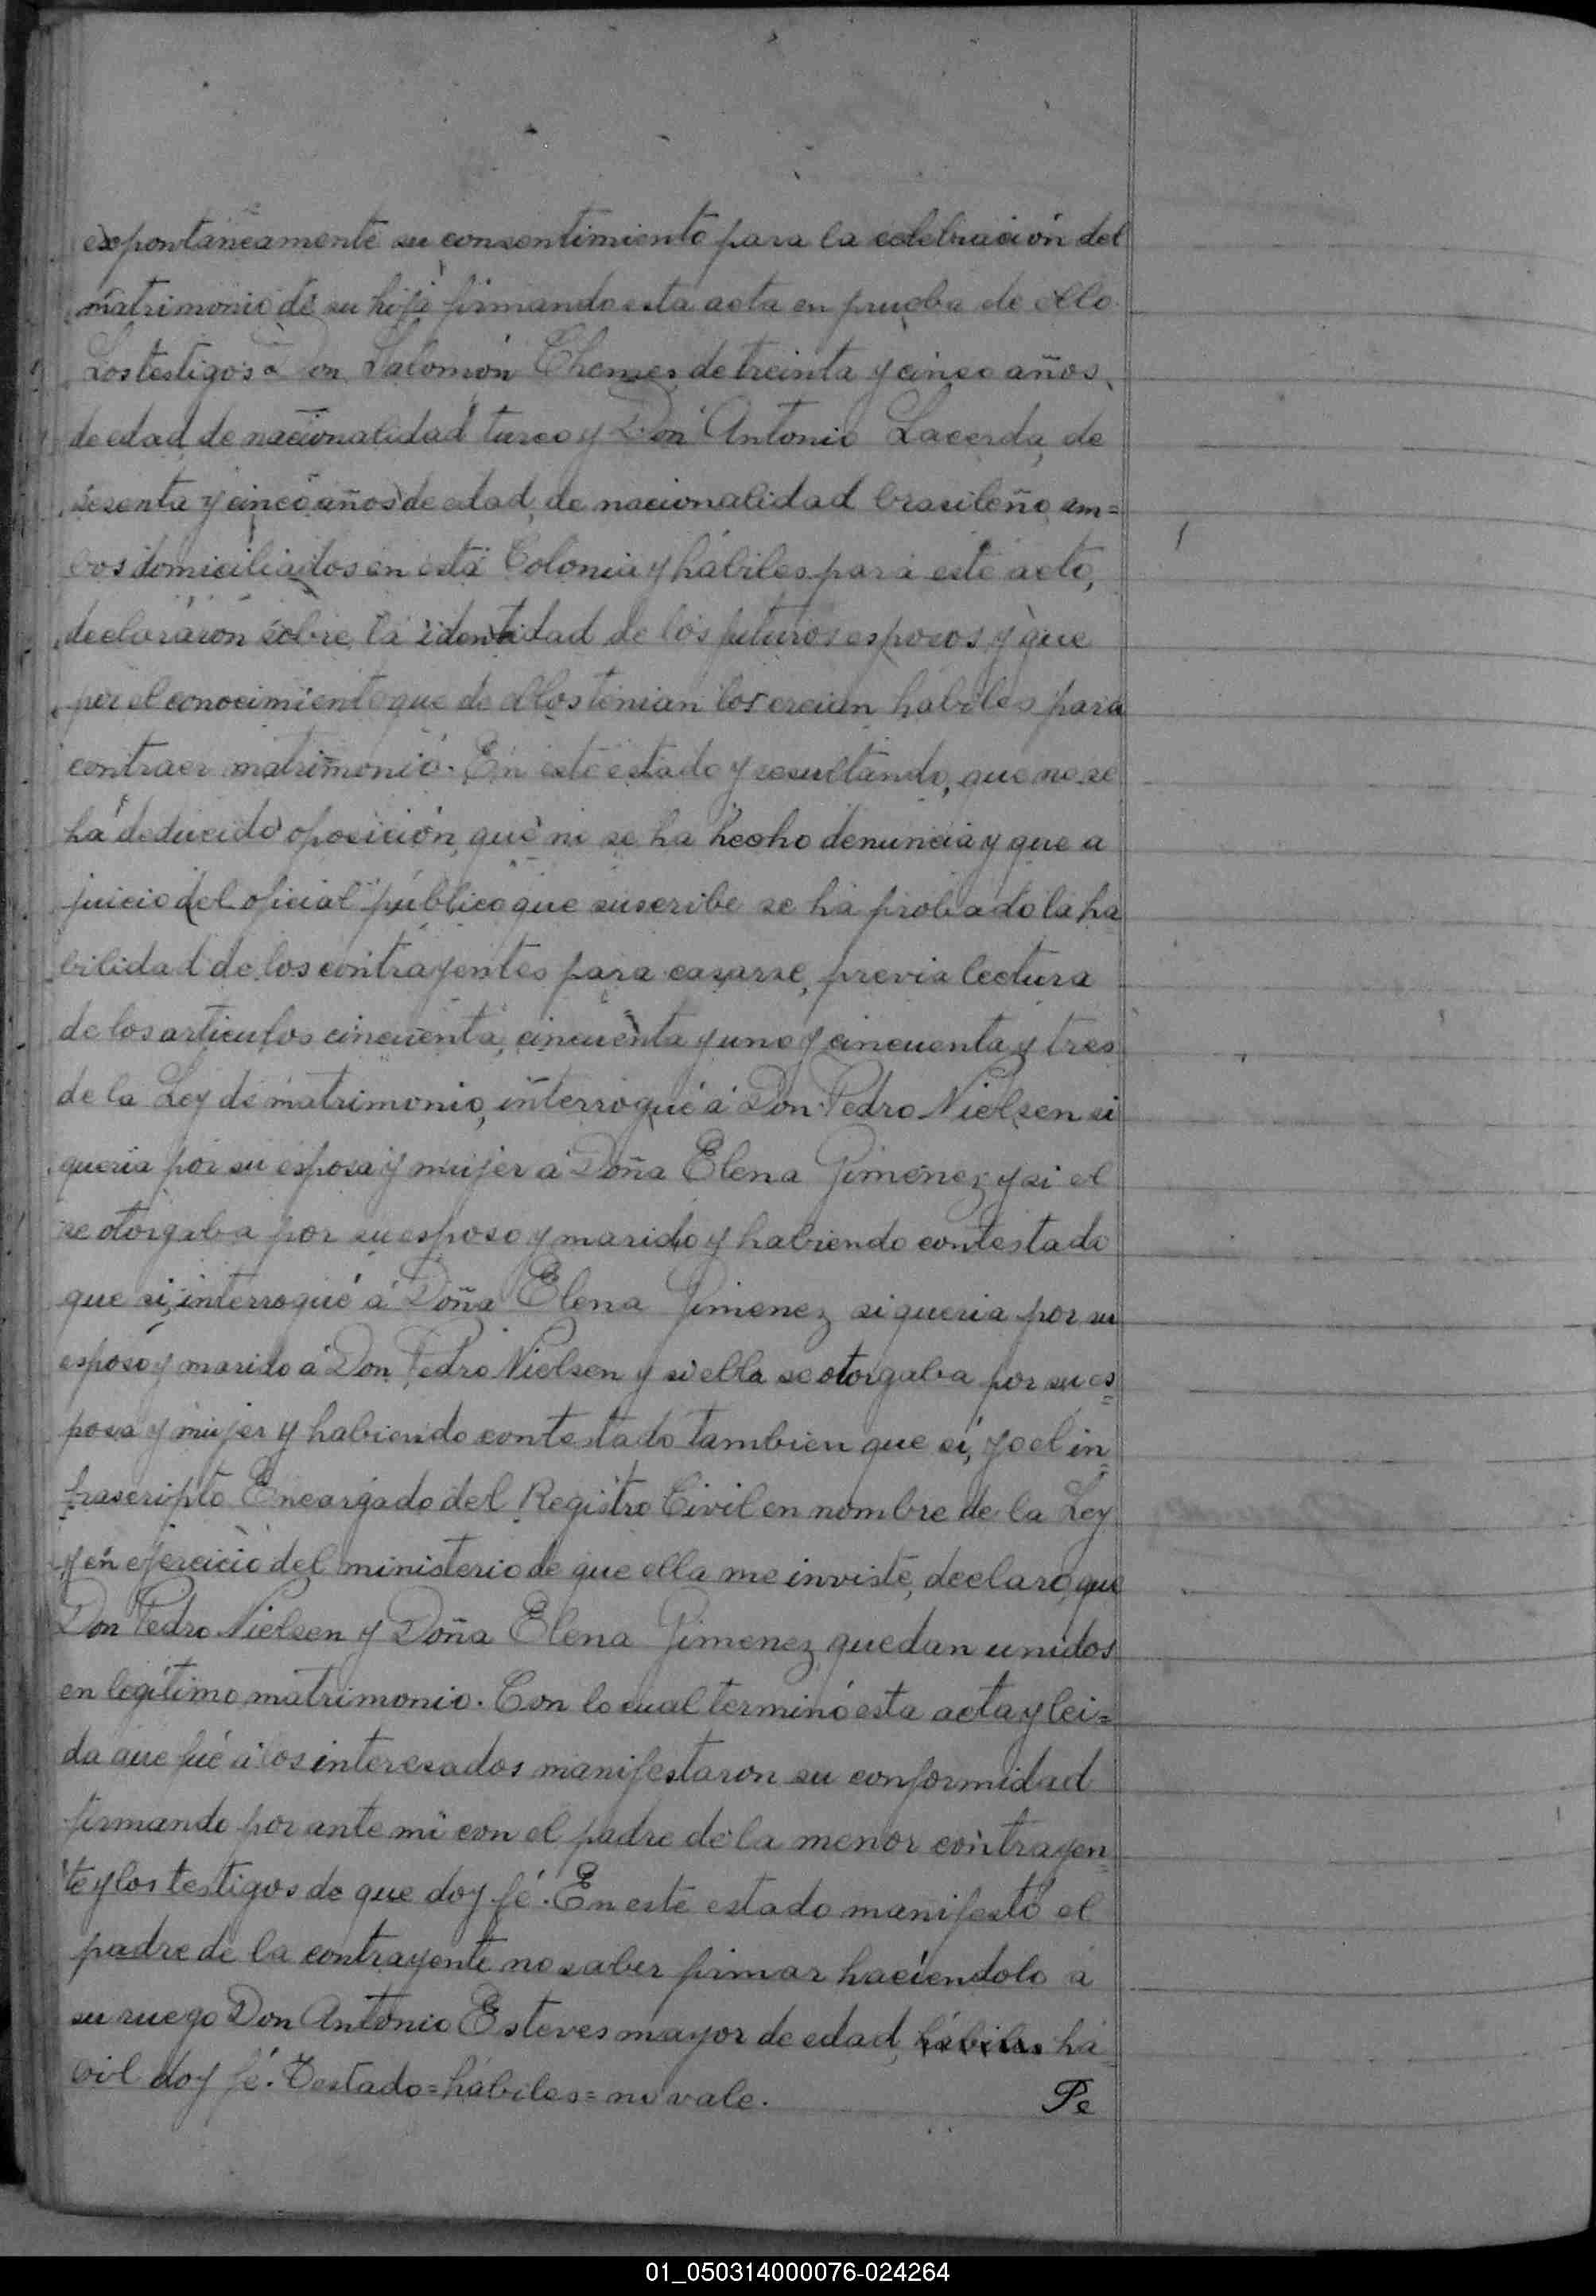 expontáneamente su consentimiento para la celebración del
matrimonio de su hija firmando esta acta en prueba de ello.
Los testigos Don Salomón Chemes de treinta y cinco años
de edad de nacionalidad turco y Don Antonio Lacerda, de
sesenta y cinco años de edad, de nacionalidad brasileño am=
bos domiciliados en esta Colonia y hábiles para este acto,
declararon sobre la identidad de los futuros esposos, y que
por el conocimiento que de ellos tenian los creian hábiles para
contraer matrimonio. En este estado y resultando, que no se
ha deducido oposición, que ni se ha hecho denuncia y que a
juicio del oficial público que suscribe se ha probado la ha
bilidad de los contrayentes para casarse, previa lectura
de los articulos cincuenta, cincuenta y uno y cincuenta y tres
de la Ley de matrimonio, interrogué á Don Pedro Nielsen si
queria por su esposa y mujer á Doña Elena Gimenez y si el
se otorgaba por su esposo y marido y habiendo contestado
que si, interrogué á Doña Elena Gimenez si queria por su
esposo y marido á Don Pedro Nielsen y si ella se otorgaba por su es=
posa y mujer y habiendo contestado tambien que si, yo el in=
frascripto Encargado del Registro Civil en nombre de la Ley
y en ejercicio del ministerio de que ella me inviste, declaro, que
Don Pedro Nielsen y Doña Elena Gimenez quedan unidos
en legítimo matrimonio. Con lo cual terminó esta acta y lei=
da que fué á los interesados manifestaron su conformidad
firmando por ante mi con el padre de la menor contrayen=
te y los testigos de que doy fé. En este estado manifestó el
padre de la contrayente no saber firmar haciendolo á
su ruego Don Antonio Esteves mayor de edad, hábiles há=
bil doy fé. Testado=hábiles=no vale.
Pe
01_050314000076-024264